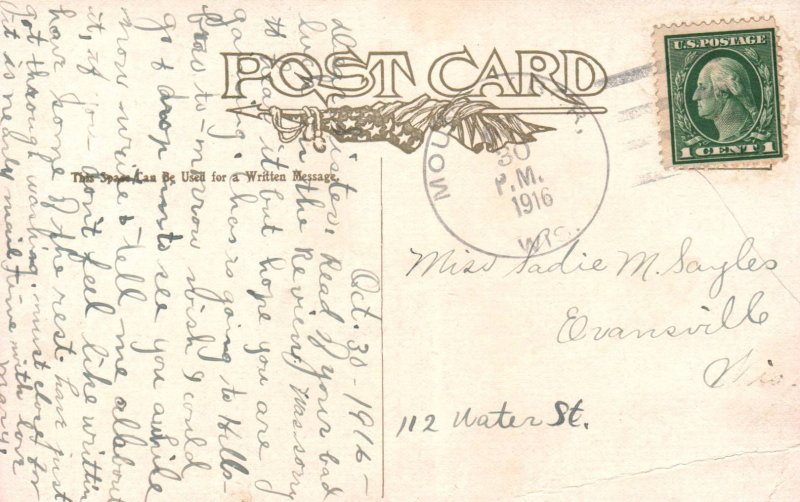 POST CARD
This Space Can Be Used for a Written Message.
U.S. POSTAGE
1 CENT 1
30
P.M.
1916
WIS.
Miss Sadie M. Sayles
Evansville
Wis.
112 Water St.
Oct. 30 - 1916 -
Dear Sister, Read of your bad
luck in the Review, Was sorry
to hear it but hope you are
gaining, Chas is going to Hills-
boro to-morrow wish I could
go & drop in to see you awhile
now write & tell me all about
it, if you don't feel like writing
have some of the rest. have just
got through washing. must close for
it is nearly mail time with love
Mary.